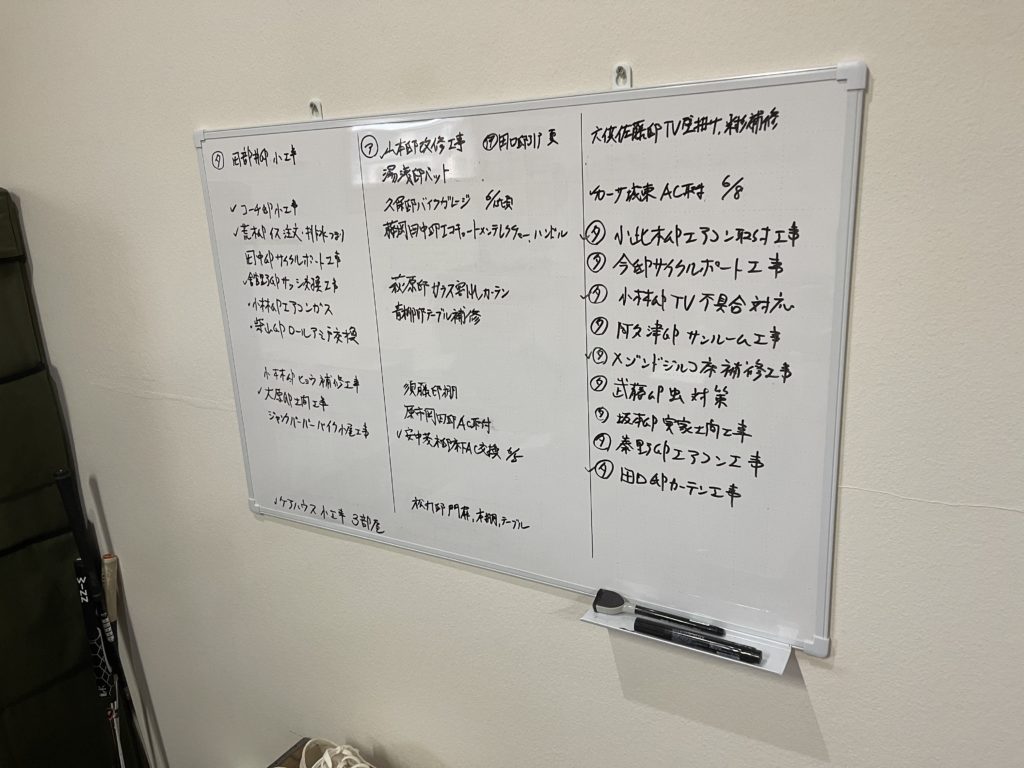 ㋟ 岡部邸 小工事
✓コーチ邸小工事
✓荒木邸イス注文・排水つまり
田中邸サイクルポート工事
サッシ交換工事
・小林邸エアコンガス
・邸ロールアミド交換
小林邸ヒョウ補修工事
✓大原邸土間工事
ジャンクバーバーバイク小屋工事
✓ケアハウス小工事 3部屋
㋐ 山本邸改修工事
湯浅邸ベット
久保邸バイクガレージ
藤岡田中邸エコキュート
萩原邸ガラス カーテン
青柳邸テーブル補修
須藤邸棚
岡田邸AC取付
✓安中茂木邸 AC交換
門扉、本棚、テーブル
佐藤邸TV壁掛け、補修
AC取付 6/8
✓㋟ 小此木邸エアコン取付工事
㋟ 今邸サイクルポート工事
✓㋟ 小林邸TV不具合対応
㋟ 阿久津邸 サンルーム工事
✓㋟ メゾンドジルコ床補修工事
㋟ 武藤邸 虫対策
㋟ 坂本邸 実家土間工事
㋟ 秦野邸エアコン工事
✓㋟ 田口邸カーテン工事